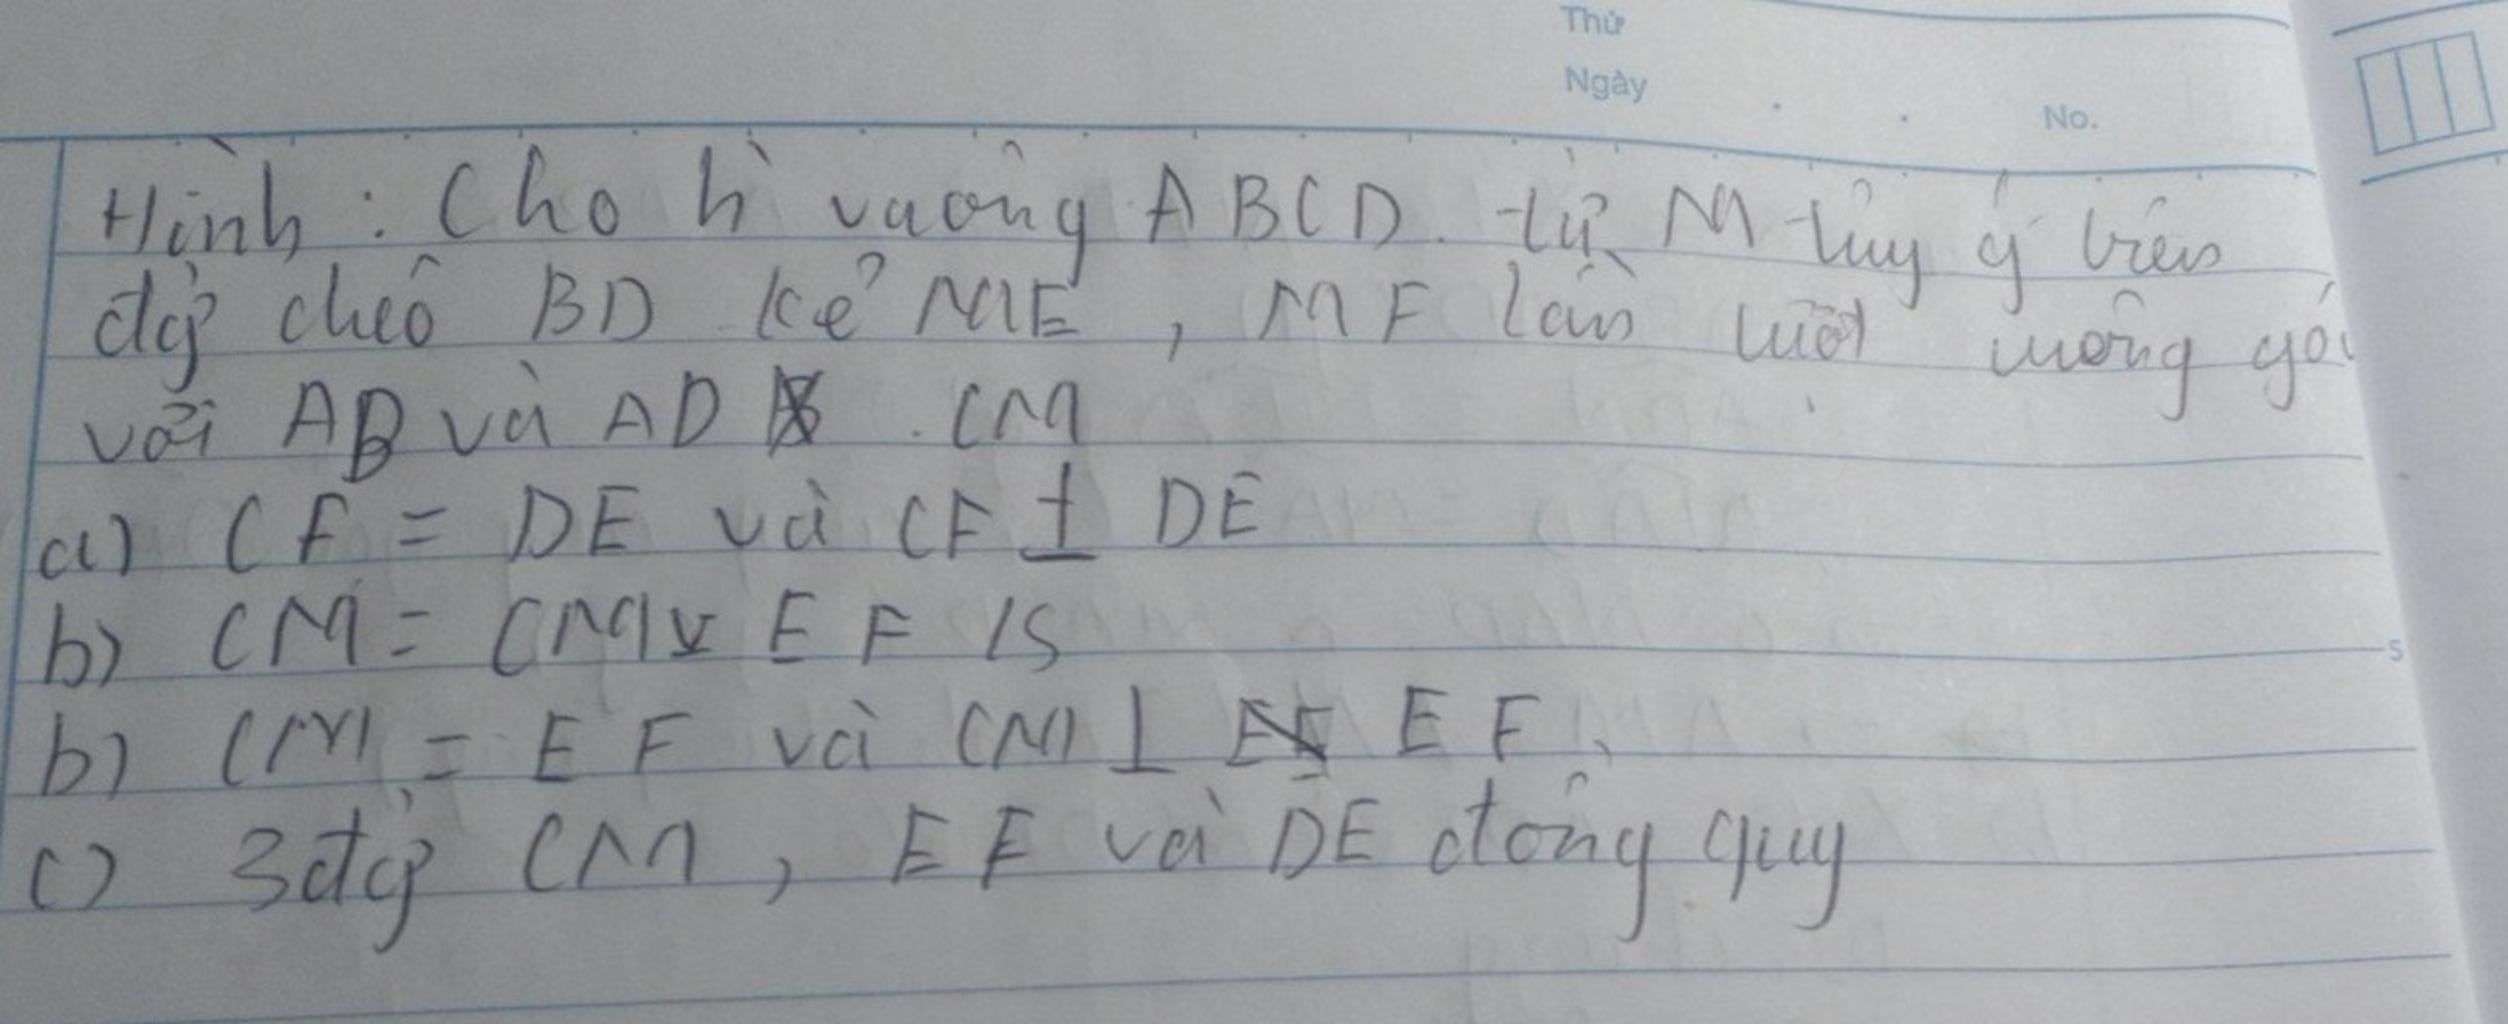 Thứ
Ngày
No.
Hình : Cho h̀ vuông ABCD. từ M tùy ý trên
đg̀ chéo BD kẻ ME, MF lần lượt vuông gó
với AB và AD . CM
a) CF = DE và CF ⊥ DE
b) CM = CM EF
5
b) CM = EF và CM ⊥ EF
c) 3 đg̀ CM, EF và DE đồng quy